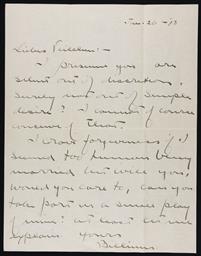 Jan. 26 - '13
I presume you are
silent out of discretion.
Surely not out of simple
desire? I cannot of course
conceive of that.
I crave forgiveness if I
seemed too human being
married but will you,
would you care to, can you
take part in a small play
of mine? at least let me
explain yours